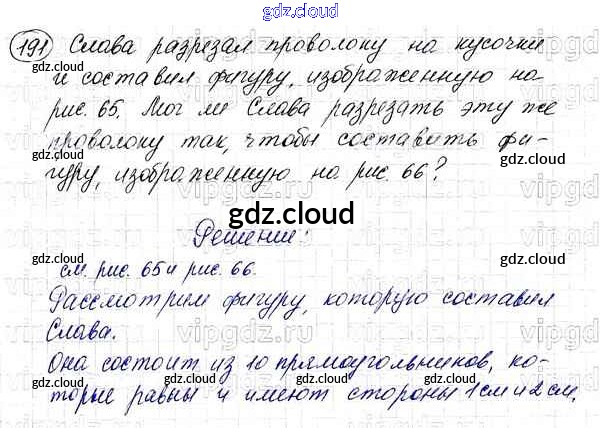 gdz.cloud
191 Слава разрезал проволоку на кусочки
и составил фигуру, изображенную на
рис. 65. Мог ли Слава разрезать эту же
проволоку так, чтобы составить фи-
гуру, изображенную на рис. 66?
gdz.cloud
Решение:
см. рис. 65 и рис. 66.
Рассмотрим фигуру, которую составил
Слава.
Она состоит из 10 прямоугольников, ко-
торые равны и имеют стороны 1 см и 2 см.
gdz.cloud